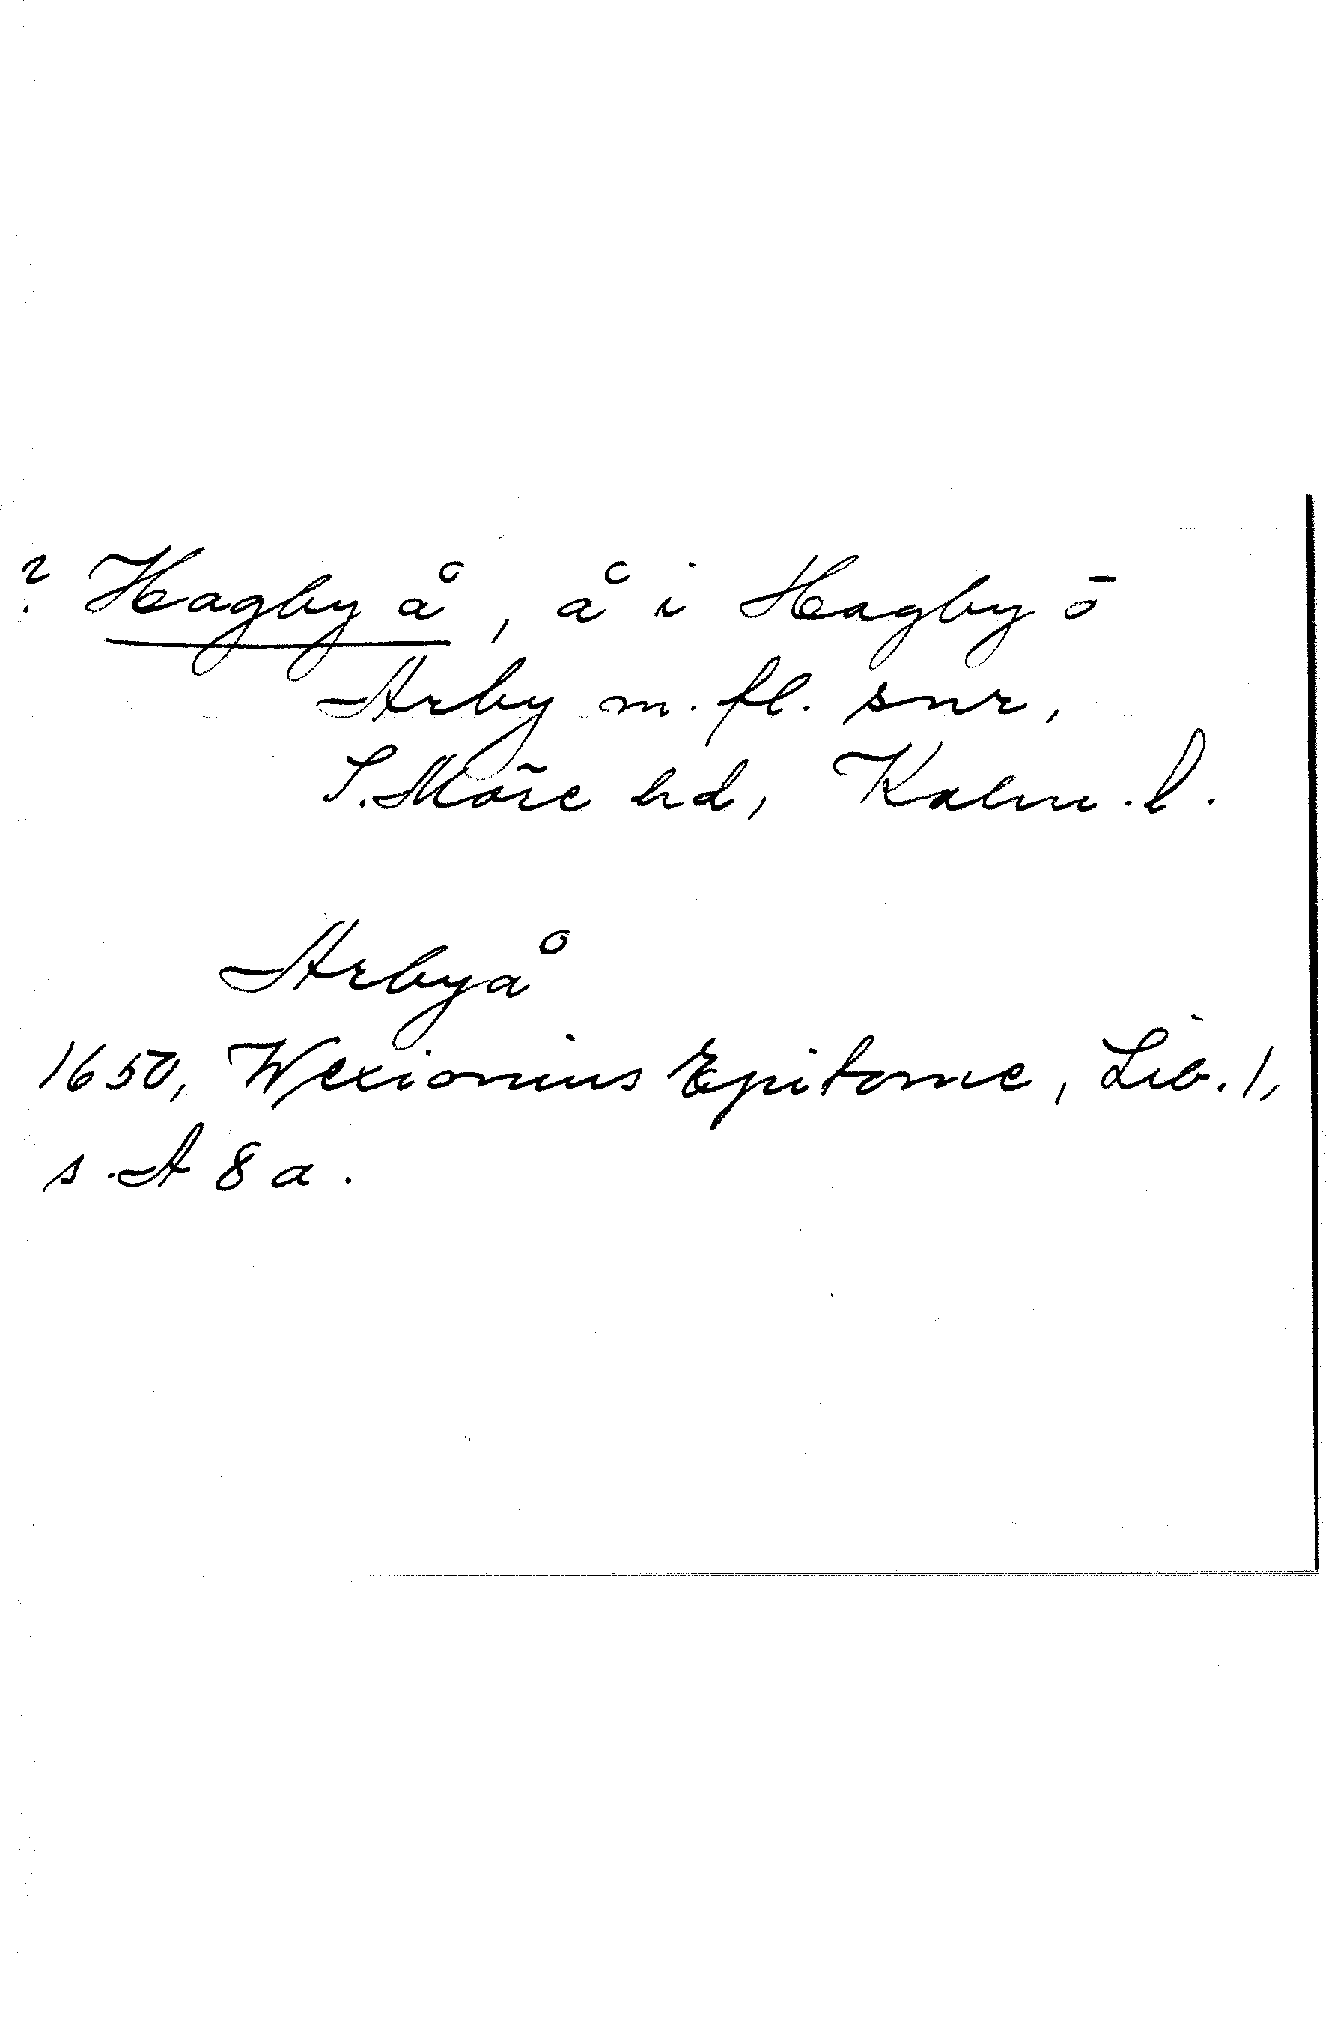 ? Hagbyå, å i Hagby o
Arby m. fl. snr,
S. Möre hd, Kalm. l.
Arbyå
1650, Wexionius Epitome, Lib. 1,
s. A 8 a.